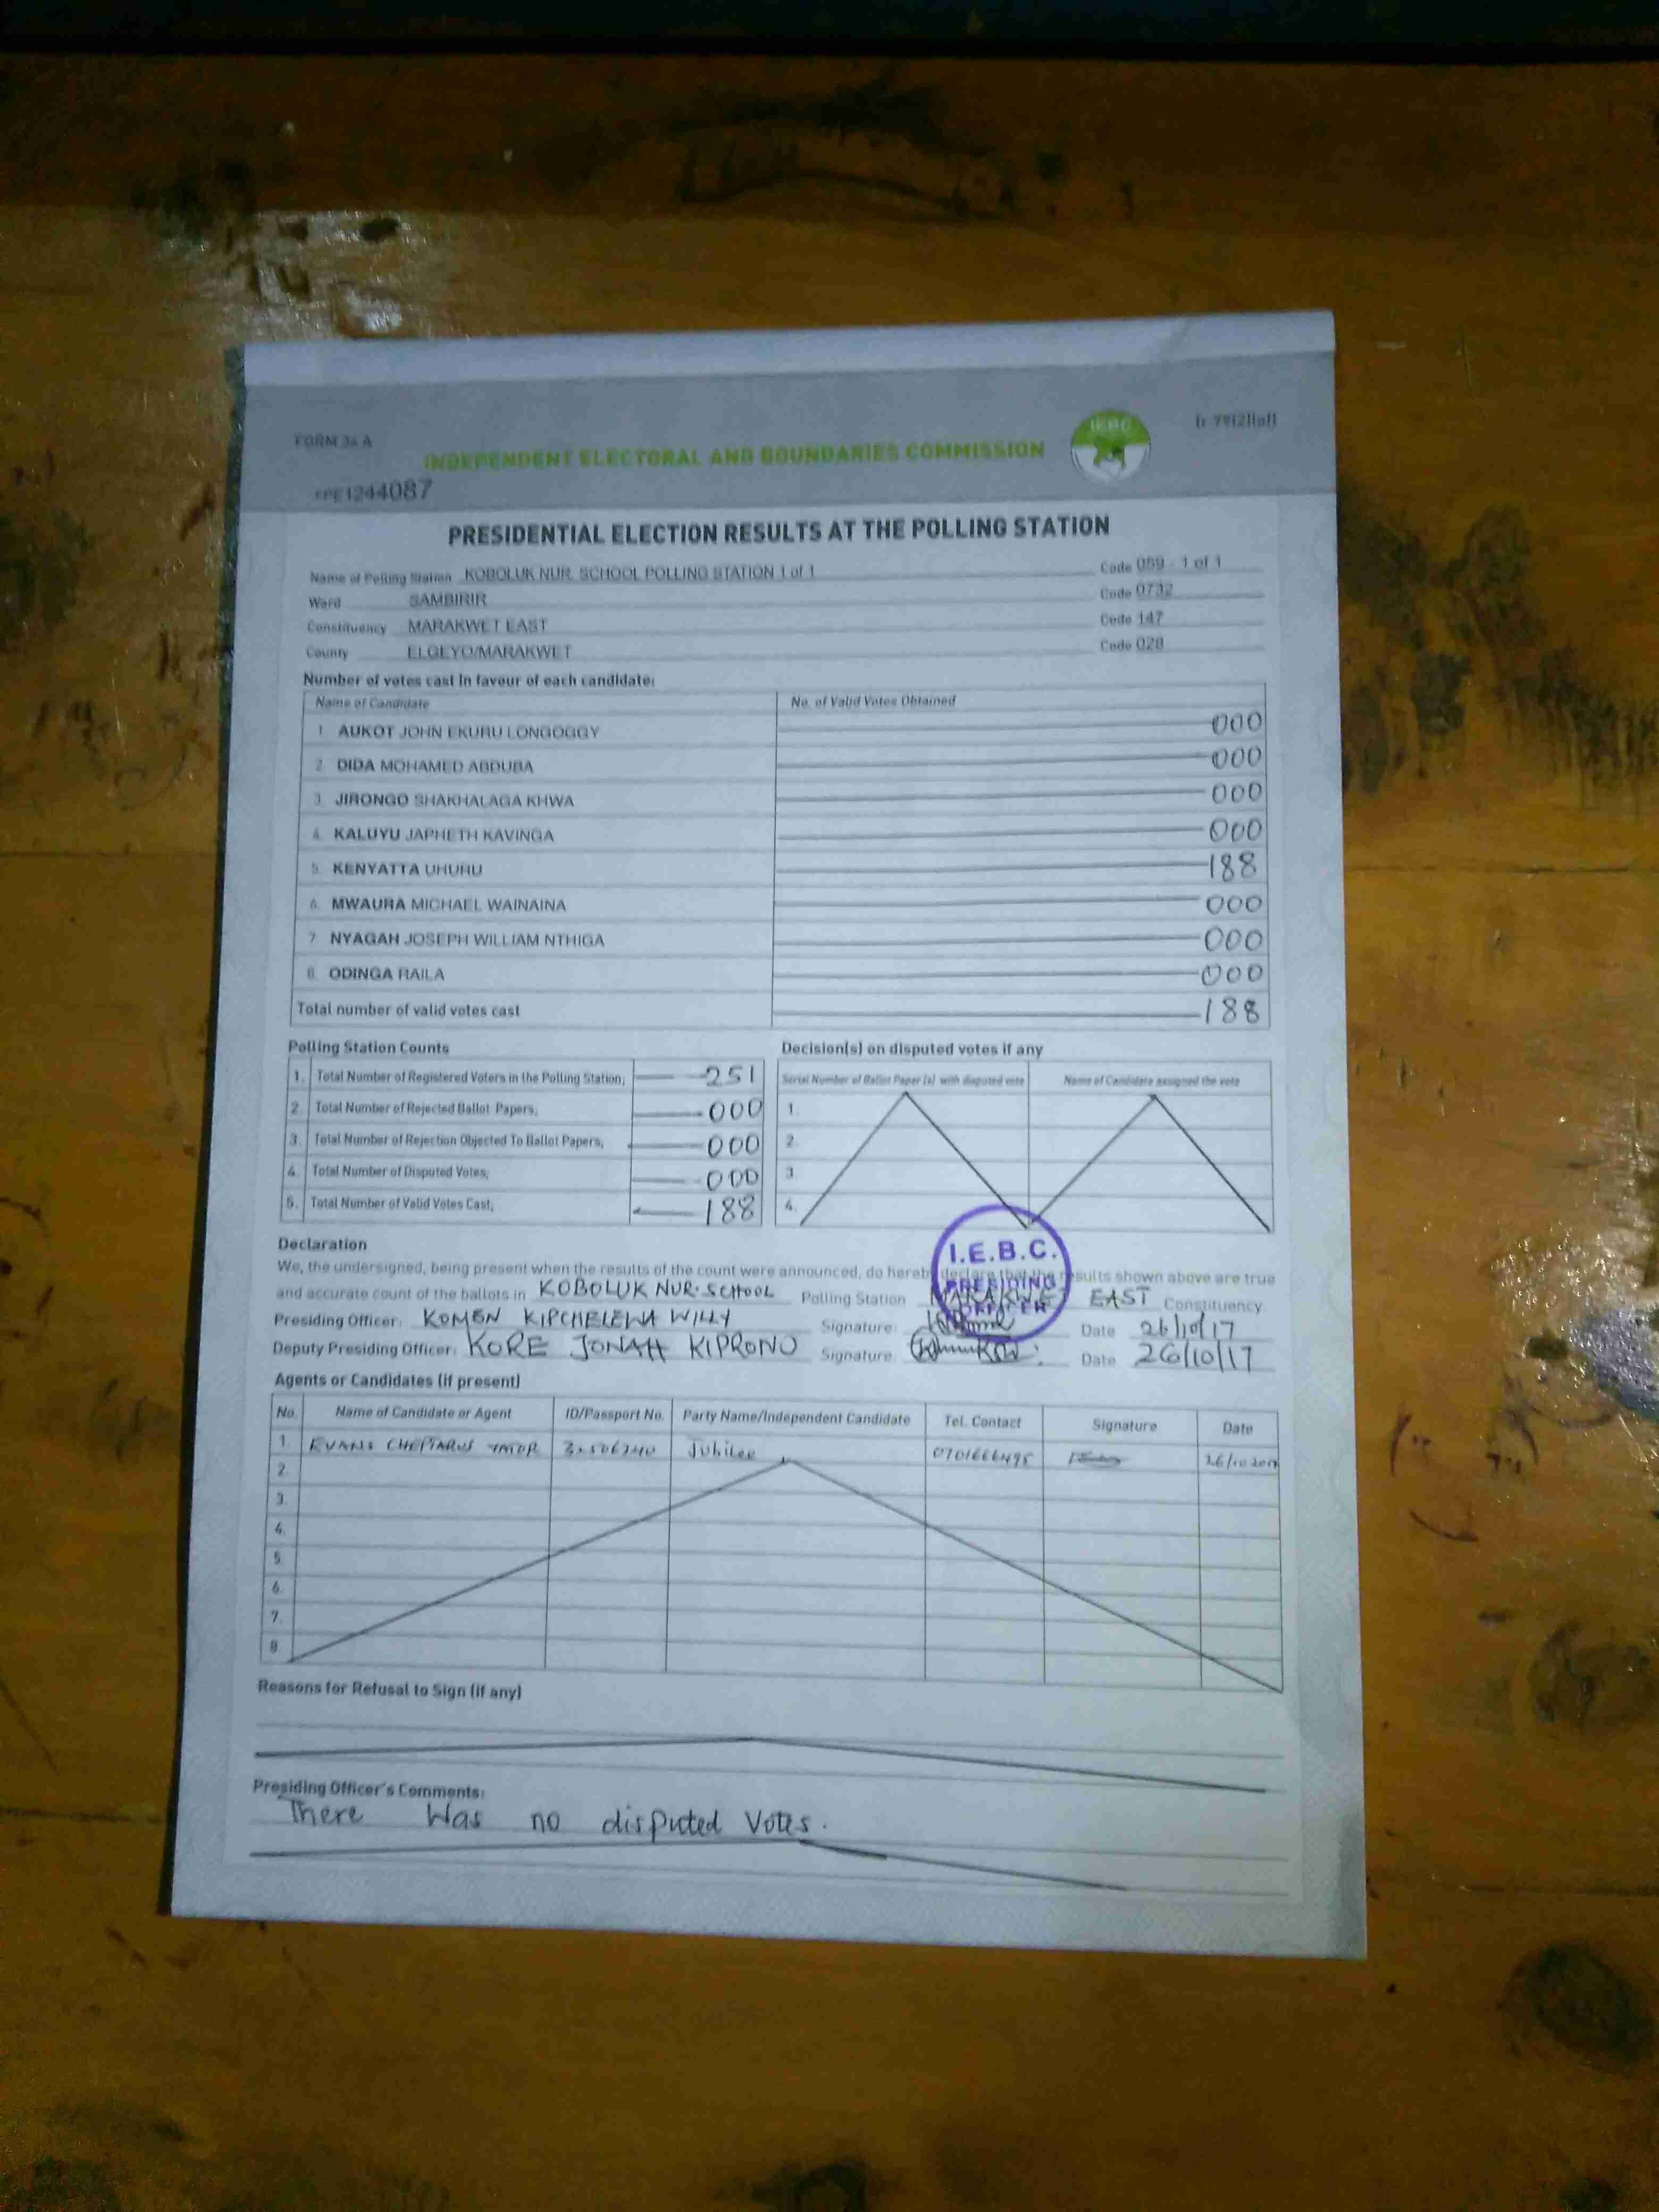 FORM 34 A
INDEPENDENT ELECTORAL AND BOUNDARIES COMMISSION
IEBC
1244087
PRESIDENTIAL ELECTION RESULTS AT THE POLLING STATION
Name of Polling Station KOBOLUK NUR. SCHOOL POLLING STATION 1 of 1 Code 059 - 1 of 1
Ward SAMBIRIR Code 0732
Constituency MARAKWET EAST Code 147
County ELGEYO/MARAKWET Code 028
Number of votes cast in favour of each candidate:
Name of Candidate No. of Valid Votes Obtained
1. AUKOT JOHN EKURU LONGOGGY 000
2. DIDA MOHAMED ABDUBA 000
3. JIRONGO SHAKHALAGA KHWA 000
4. KALUYU JAPHETH KAVINGA 000
5. KENYATTA UHURU 188
6. MWAURA MICHAEL WAINAINA 000
7. NYAGAH JOSEPH WILLIAM NTHIGA 000
8. ODINGA RAILA 000
Total number of valid votes cast 188
Polling Station Counts
1. Total Number of Registered Voters in the Polling Station; 251
2. Total Number of Rejected Ballot Papers; 000
3. Total Number of Rejection Objected To Ballot Papers; 000
4. Total Number of Disputed Votes; 000
5. Total Number of Valid Votes Cast; 188
Decision(s) on disputed votes if any
Serial Number of Ballot Paper (s) with disputed vote Name of Candidate assigned the vote
1.
2.
3.
4.
I.E.B.C.
PRESIDING
OFFICER
Declaration
We, the undersigned, being present when the results of the count were announced, do hereby declare that the results shown above are true
and accurate count of the ballots in KOBOLUK NUR. SCHOOL Polling Station MARAKWET EAST Constituency.
Presiding Officer: KOMEN KIPCHELEWA WILLY Signature: Date 26/10/17
Deputy Presiding Officer: KORE JONAH KIPRONO Signature: Date 26/10/17
Agents or Candidates (if present)
No. Name of Candidate or Agent ID/Passport No. Party Name/Independent Candidate Tel. Contact Signature Date
1. EVANS Jubilee 0701666495 26/10 2017
2.
3.
4.
5.
6.
7.
8
Reasons for Refusal to Sign (if any)
Presiding Officer's Comments:
There was no disputed Votes.